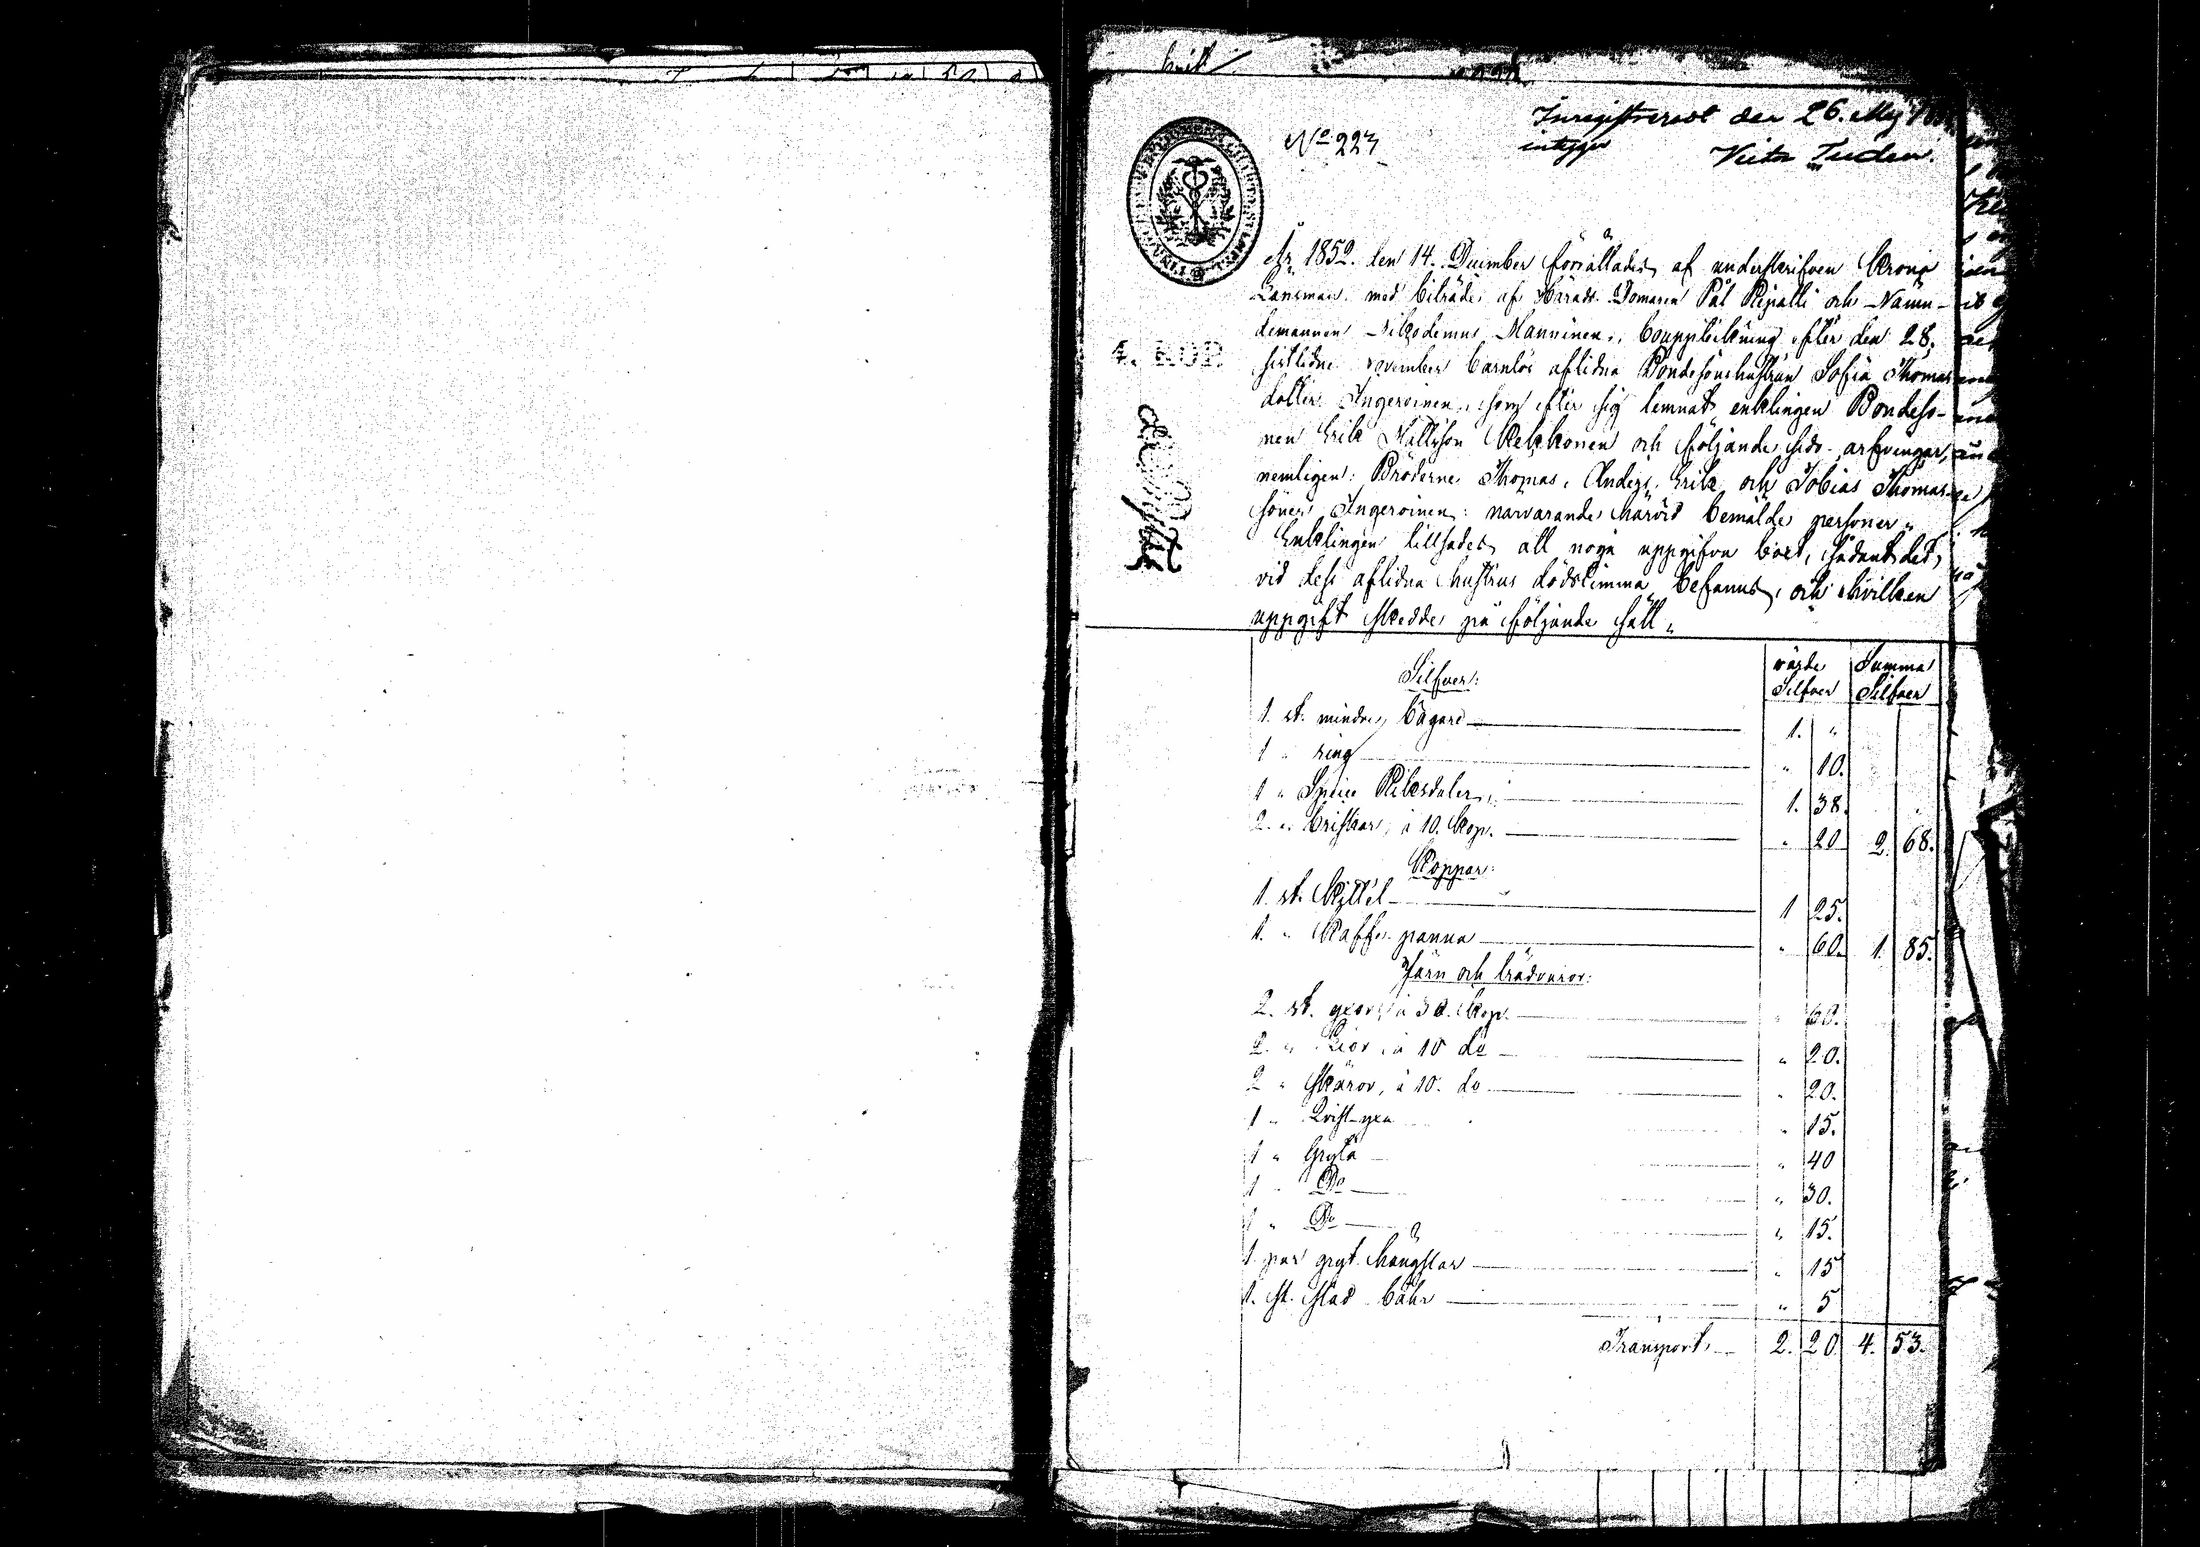 Inregistrerat den 26. Maj
intygar
No 227
År 1852. den 14. December förrättades af underskrifven Krono
Länsman med biträde af Härads Domaren Pål Repatti och Nämn-
demannen Nikodemus Manninen, bouppteckning efter den 28.
sistlidne november barnlös aflidna Bondesonshustrun Sofia Thomas
dotter Ingeroinen, som efter sig lemnat enklingen Bondeso-
nen Erik Mattsson Kekkonen och följande sido-arfvingar,
nemligen: Bröderne Thomas, Anders, Erik och Tobias Thomas
söner Ingeroinen: närvarande härvid bemälde personer.
Enklingen tillsades att noga uppgifva boet, sådant det,
vid dess aflidna hustrus dödstimma befanns, och hvilken
uppgift skedde på följande sätt.
4. KOP.
värde Silfver Summa Silfver
Silfver:
1. st. mindre bägare 1. "
1 " ring " 10.
1 " Specie Riksdaler 1. 38.
2. " briskor, à 10. kop. " 20 2. 68.
Koppar:
1. st. Kittel 1 25.
1. " Kaffe panna " 60. 1. 85.
Järn och trädvaror:
2. st. yxor, à 30. kop. " 60.
2. " Lior, à 10 do " 20.
2 " Skäror, à 10. do " 20.
1 " Qvist-yxa " 15.
1 " Gryta " 40
1 " Do " 30.
1 " Do " 15.
1 par gryt hängslar " 15
1. st. stad bähr " 5
Transport 2. 20. 4. 53.